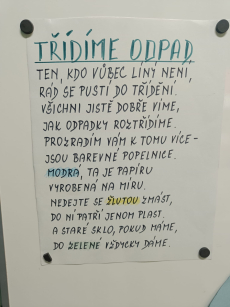 TŘÍDÍME ODPAD
TEN, KDO VŮBEC LÍNÝ NENÍ,
RÁD SE PUSTÍ DO TŘÍDĚNÍ.
VŠICHNI JISTĚ DOBŘE VÍME,
JAK ODPADKY ROZTŘÍDÍME.
PROZRADÍM VÁM K TOMU VÍCE-
JSOU BAREVNÉ POPELNICE.
MODRÁ, TA JE PAPÍRU
VYROBENÁ NA MÍRU.
NEDEJTE SE ŽLUTOU ZMÁST,
DO NÍ PATŘÍ JENOM PLAST.
A STARÉ SKLO, POKUD MÁME,
DO ZELENÉ VŽDYCKY DÁME.